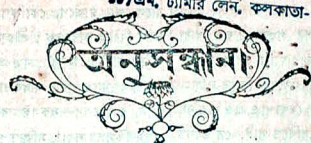 ট্যামার লেন, কলকাতা-
অনুসন্ধান।